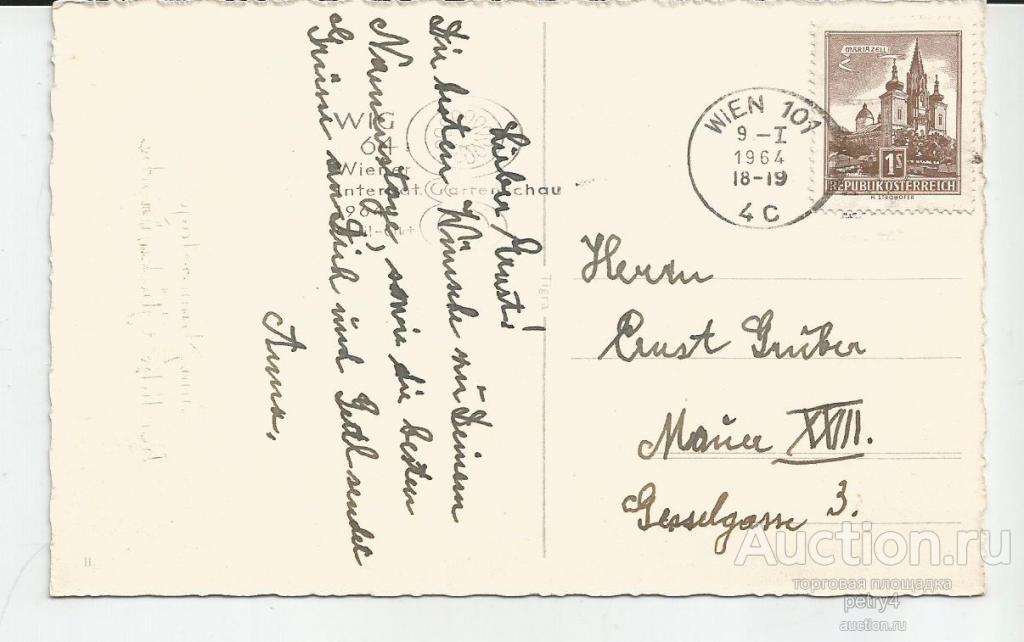 Lieber Ernst!
Die besten Wünsche zu Deinem
Namenstage, sowie die besten
Grüsse an Dich und Gedl sendet
Anna.
WIG
64
Wiener
Internat. Gartenschau
196
WIEN 101
9-I
1964
18-19
4C
MARIAZELL
1S
REPUBLIK ÖSTERREICH
H. STROHOFER
Tigra
Herrn
Ernst Gruber
Mauer XXIII.
Gesselgasse 3.
II
Auction.ru
торговая площадка
petry4
auction.ru